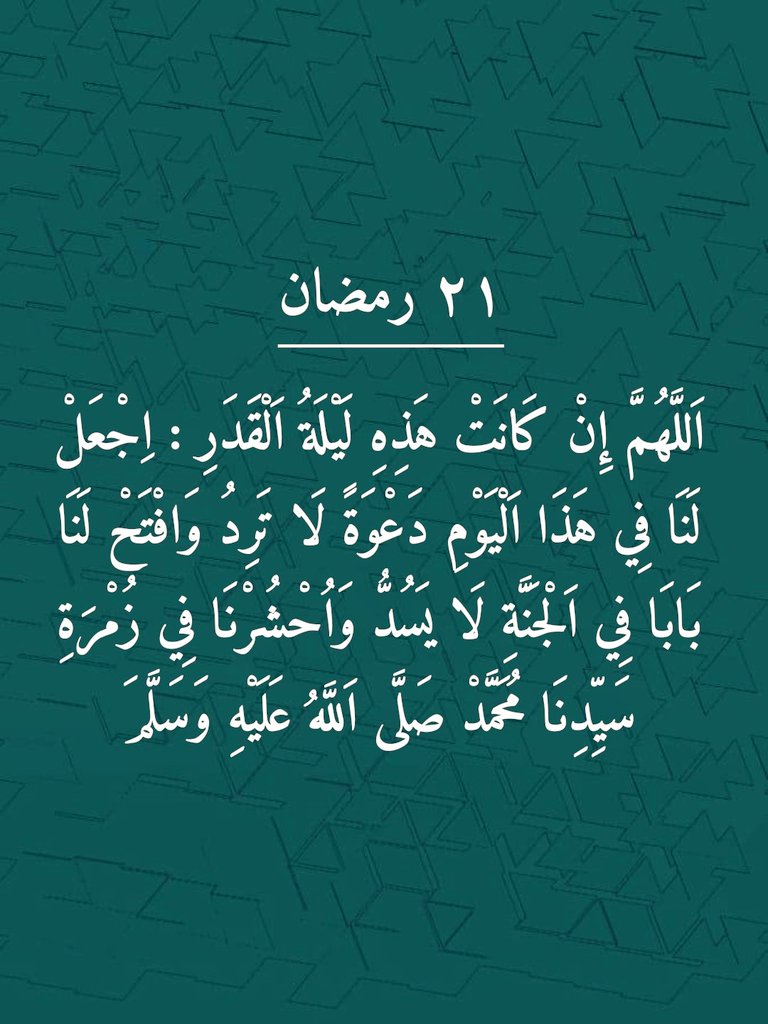 ٢١ رمضان
اَللَّهُمَّ إِنْ كَانَتْ هَذِهِ لَيْلَةُ اَلْقَدَرِ : اِجْعَلْ
لَنَا فِي هَذَا اَلْيَوْمِ دَعْوَةً لَا تَرِدُ وَافْتَحْ لَنَا
بَابَا فِي اَلْجَنَّةِ لَا يَسُدُّ وَاُحْشُرْنَا فِي زُمْرَةِ
سَيِّدِنَا مُحَمَّدْ صَلَّى اَللَّهُ عَلَيْهِ وَسَلَّمَ